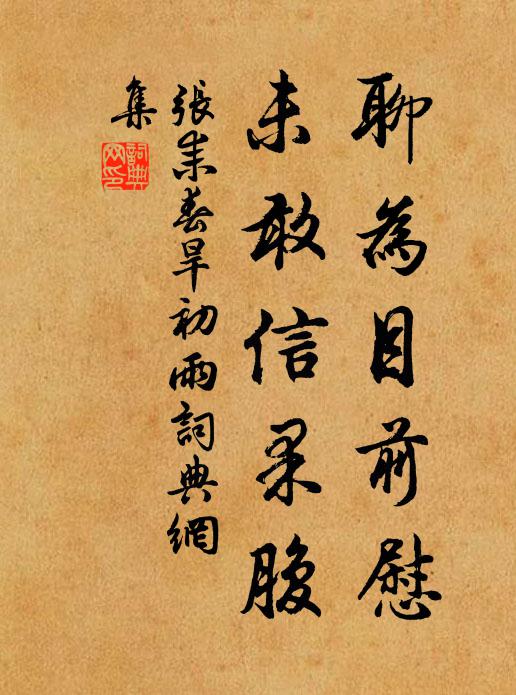 聊為目前慰
未敢信果腹
張耒春旱初雨詞典網
集
詞典
网印